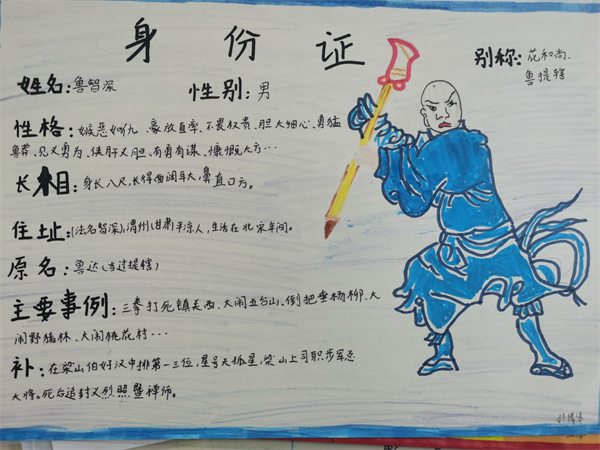 身份证
姓名：鲁智深
性别：男
别称：花和尚、
鲁提辖
性格：嫉恶如仇、豪放直率、不畏权贵、胆大细心、勇猛
鲁莽、见义勇为、侠肝义胆、有勇有谋、慷慨大方…
长相：身长八尺，长得面阔耳大，鼻直口方。
住址：(法名智深)，渭州(甘肃)平凉人，生活在北宋年间。
原名：鲁达(当过提辖)
主要事例：三拳打死镇关西、大闹五台山、倒把垂杨柳、大
闹野猪林、大闹桃花村…
补：在梁山伯好汉中排第一三位，星号天孤星，梁山上司职步军总
大将。死后追封义烈照暨禅师。